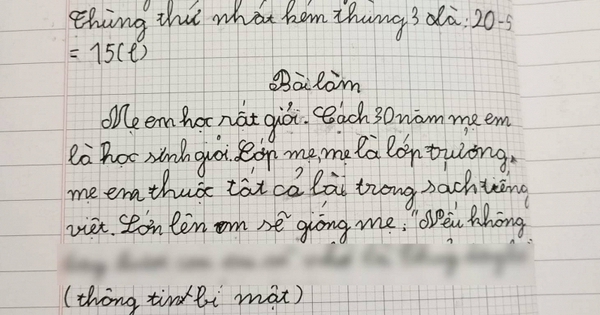 Thùng thứ nhất kém thùng 3 là: 20-5
= 15(l)
Bài làm
Mẹ em học rất giỏi. Cách 30 năm mẹ em
là học sinh giỏi. Lớp mẹ, mẹ là lớp trưởng,
mẹ em thuộc tất cả lài trong sach tiếng
việt. Lớn lên em sẽ giống mẹ: "Nếu không
(thông tin bí mật)